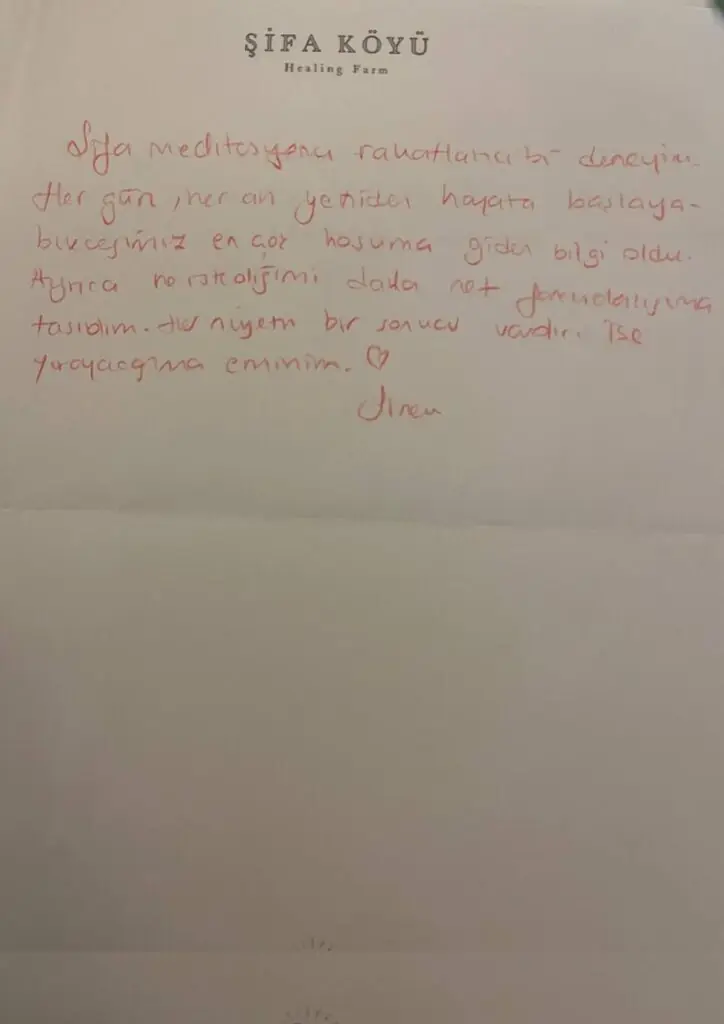 ŞİFA KÖYÜ
Healing Farm
Şifa meditasyonu rahatlatıcı bir deneyim.
Her gün, her an yeniden hayata başlaya-
bileceğimiz en çok hoşuma giden bilgi oldu.
Ayrıca ne istediğimi daha net farkındalığıma
taşıdım. Her niyetin bir sonucu vardır. İşe
yarayacağına eminim. ♡